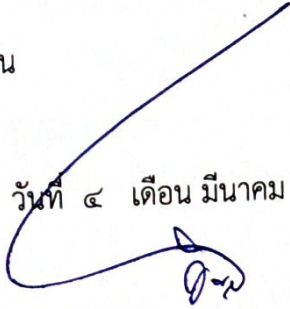 น
วันที่ ๔ เดือน มีนาคม